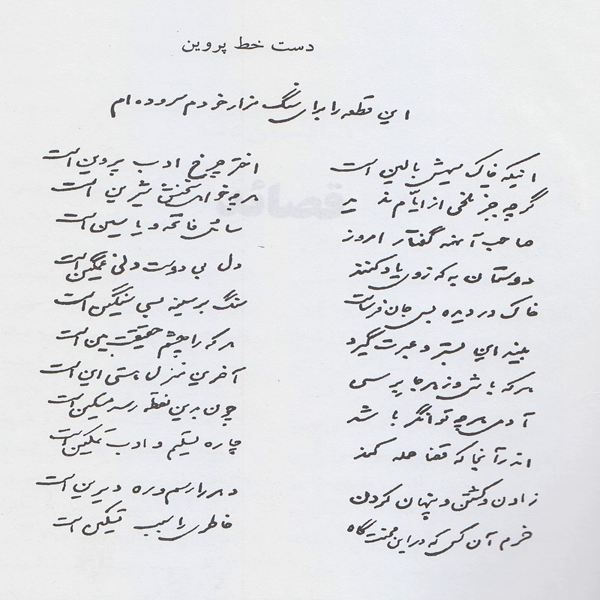 دست خط پروین
این قطعه را برای سنگ مزار خودم سروده‌ام
اینکه خاک سیهش بالین است اختر چرخ ادب پروین است
گرچه جز تلخی از ایام ندید هر چه خواهی سخنش شیرین است
صاحب آنهمه گفتار امروز سائل فاتحه و یاسین است
دوستان به که ز وی یاد کنند دل بی دوست دلی غمگین است
خاک در دیده بسی جان فرساست سنگ بر سینه بسی سنگین است
بیند این بستر و عبرت گیرد هر که را چشم حقیقت بین است
هر که باشی و ز هر جا برسی آخرین منزل هستی این است
آدمی هر چه توانگر باشد چون بدین نقطه رسد مسکین است
اندر آنجا که قضا حمله کند چاره تسلیم و ادب تمکین است
زادن و کشتن و پنهان کردن دهر را رسم و ره دیرین است
خرم آن کس که در این محنت گاه خاطری را سبب تسکین است